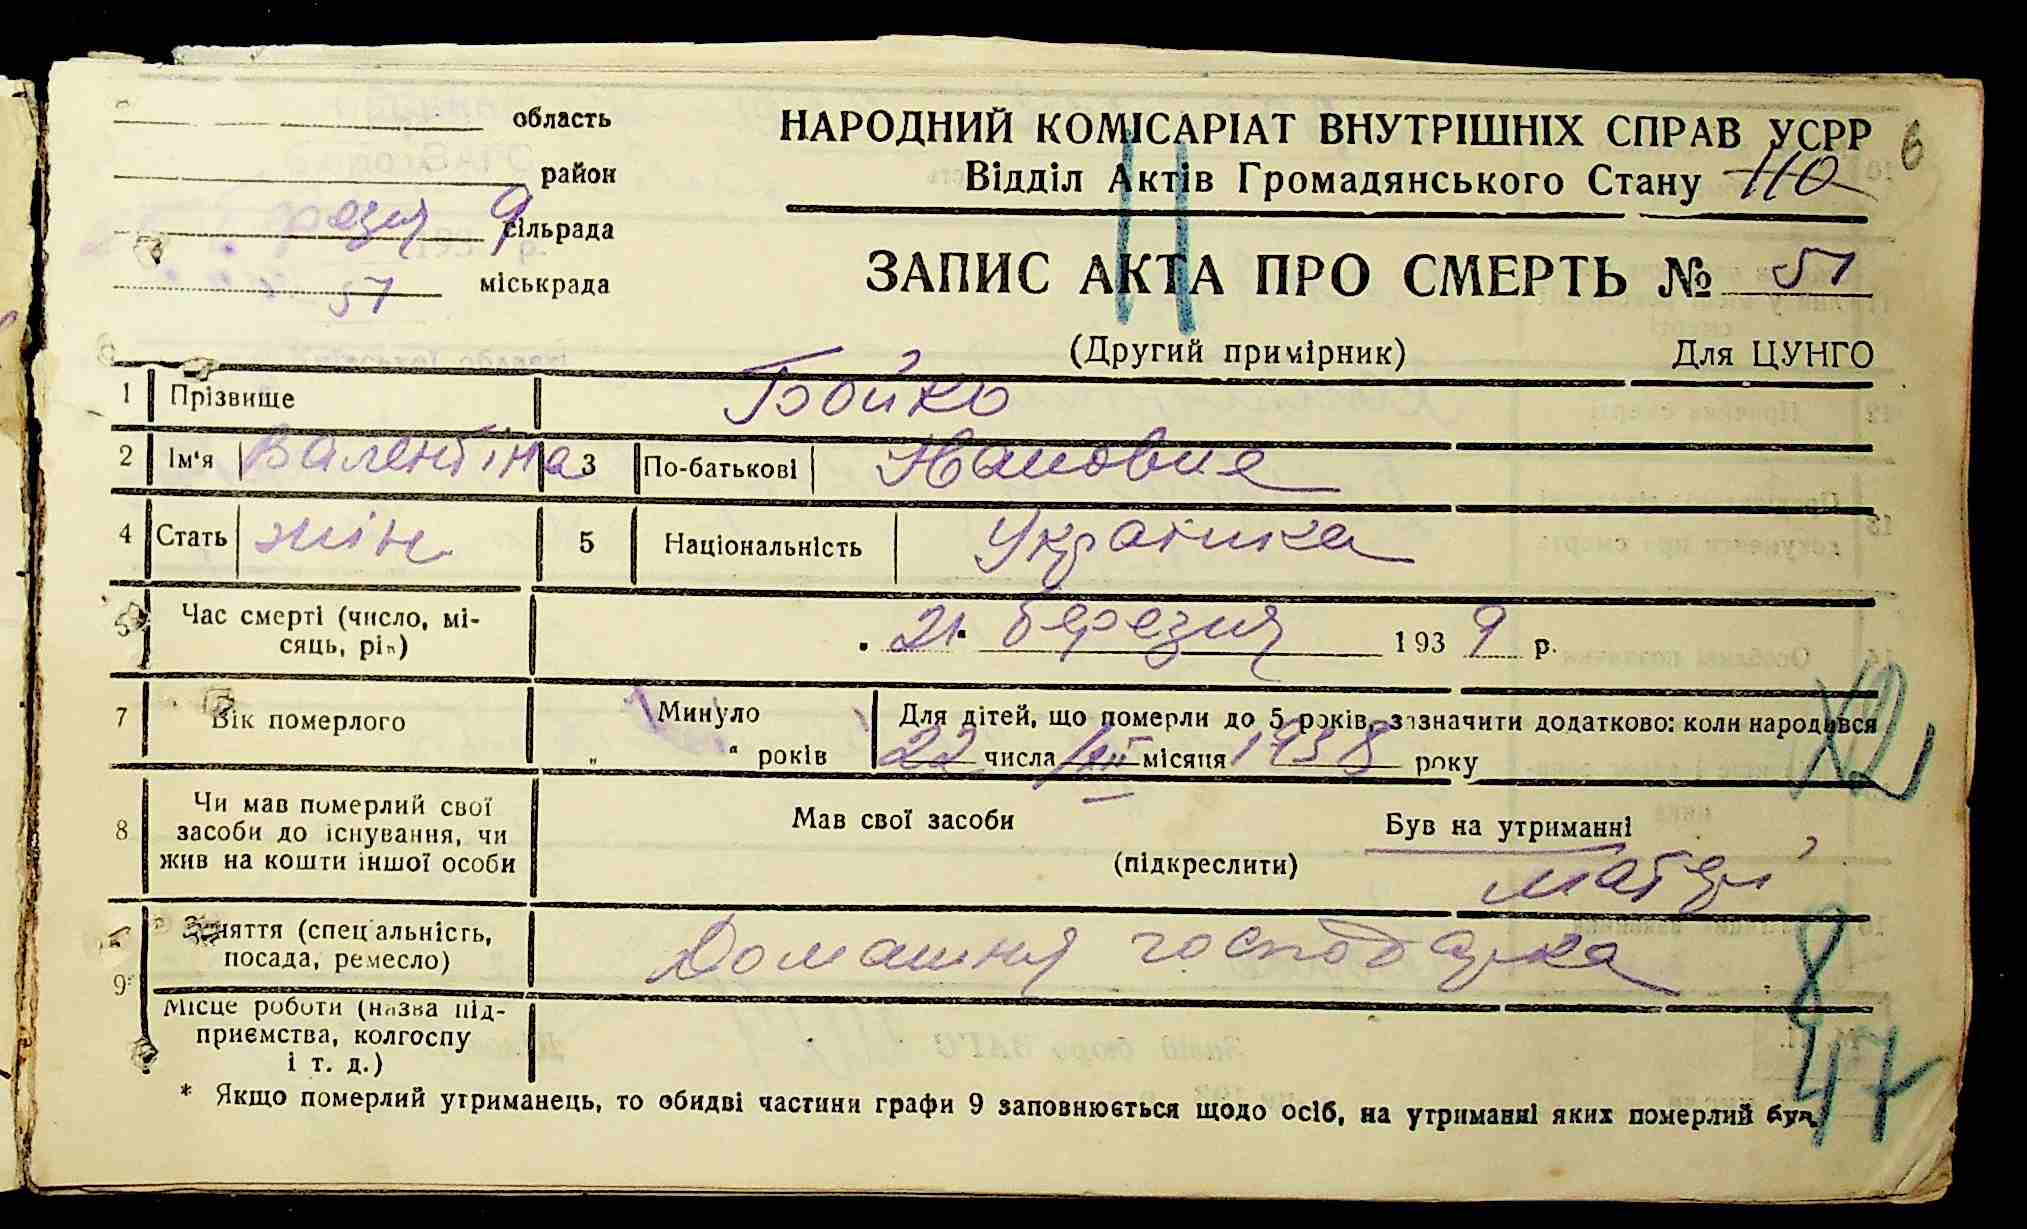 область
район
сільрада
міськрада
57
НАРОДНИЙ КОМІСАРІАТ ВНУТРІШНІХ СПРАВ УСРР
6
Відділ Актів Громадянського Стану
110
ЗАПИС АКТА ПРО СМЕРТЬ № 51
(Другий примірник) Для ЦУНГО
1 Прізвище Бойко
2 Ім'я Валентіна 3 По-батькові
4 Стать жін 5 Національність Українка
Час смерті (число, мі-
сяць, рік)
21 березня 1939 р.
7 Вік померлого
Минуло
" " років
Для дітей, що померли до 5 років, зазначити додатково: коли народився
22 числа місяця 1938 року
8
Чи мав померлий свої
засоби до існування, чи
жив на кошти іншої особи
Мав свої засоби Був на утриманні
(підкреслити)
матері
9*
Заняття (спеціальність,
посада, ремесло)
Домашня господарка
Місце роботи (назва під-
приємства, колгоспу
і т. д.)
* Якщо померлий утриманець, то обидві частини графи 9 заповнюється щодо осіб, на утриманні яких померлий був.
8
47